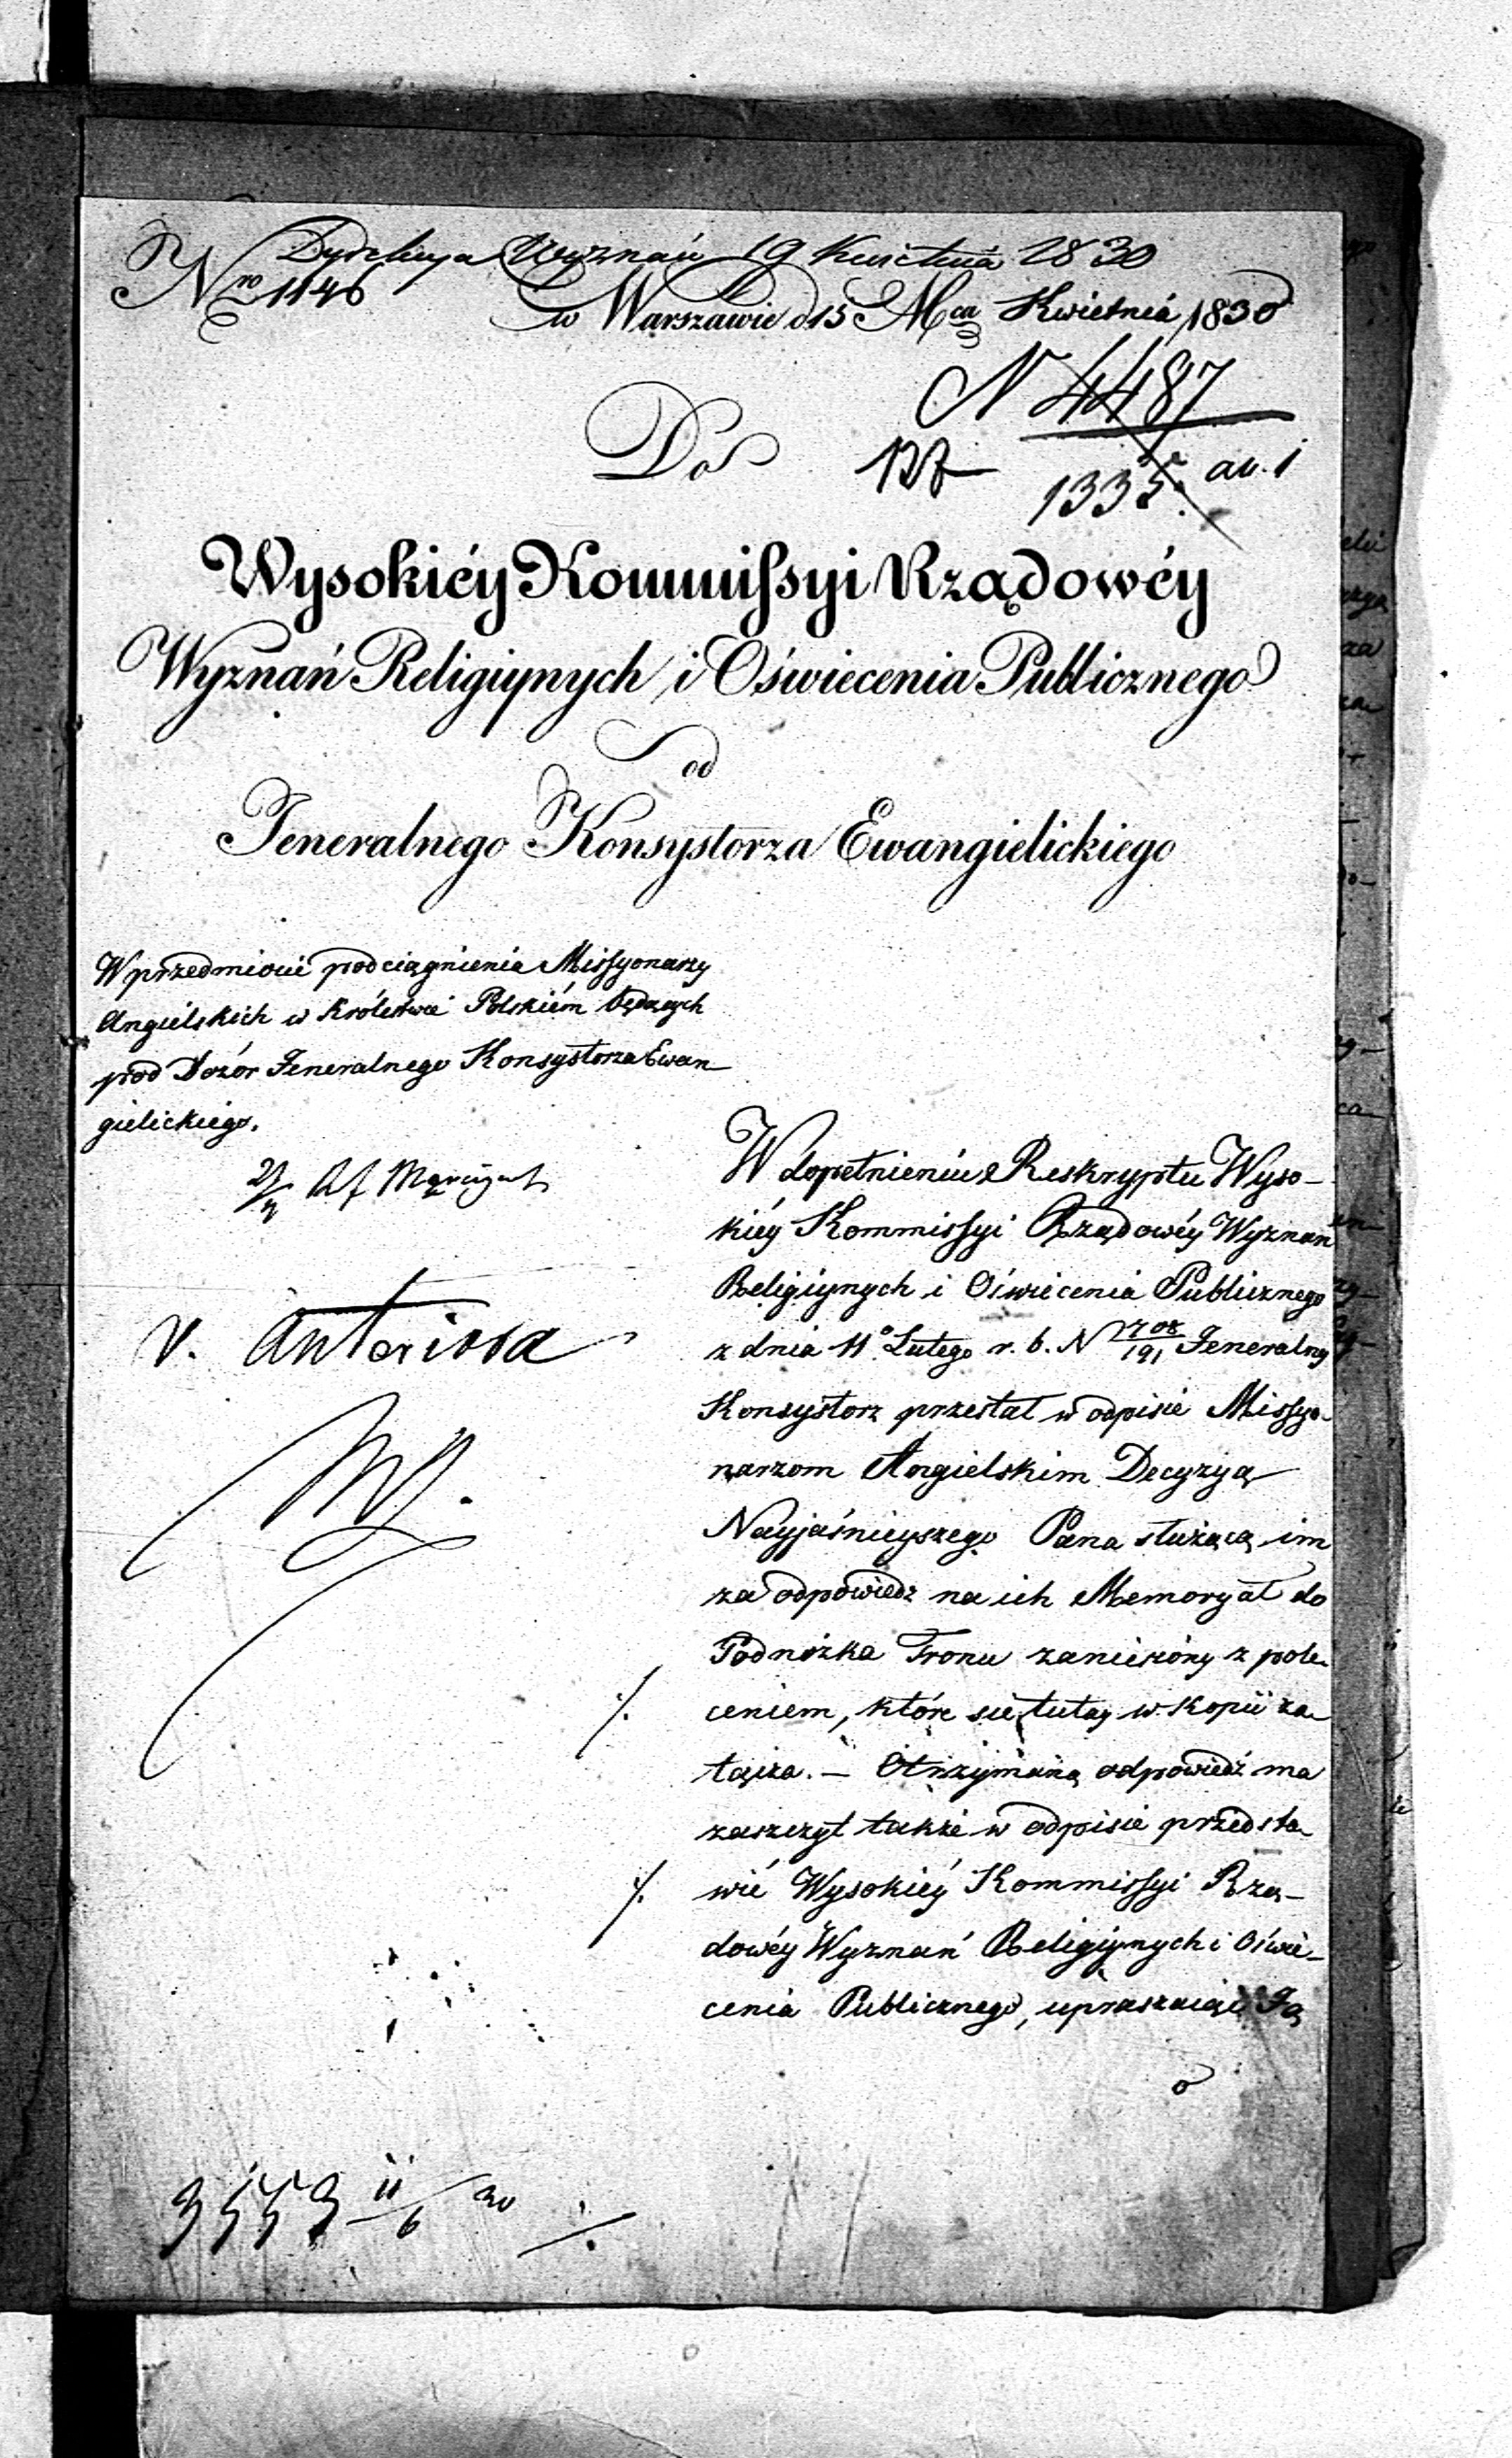 Dyrekcya Wyznań 19 Kwietnia 1830
Nro 1146 w Warszawie d 15 Mca Kwietnia 1830
N 4487
Do 127 1335. av. 1
Wysokiéy Kommissyi Rządowéy
Wyznań Religiynych i Oświecenia Publicznego
od
Jeneralnego Konsystorza Ewangielickiego
W przedmiocie podciągnienia Missyonarzy
Angielskich w Królestwie Polskiém będących
pod Dozór Jeneralnego Konsystorza Ewan
gielickiego.
W dopełnieniu Reskryptu Wyso-
kiéy Kommissyi Rządowéy Wyznań
Religiynych i Oświecenia Publicznego
z dnia 11o Lutego r. b. N 1708/191 Jeneralny
Konsystorz przesłał w odpisie Missyo-
narzom Angielskim Decyzyą
Nayjaśnieyszego Pana służącą im
za odpowiedz na ich Memoryał do
Podnóżka Tronu zaniesiony z pole-
ceniem, które się tutay w kopii za-
łącza. — Otrzymaną odpowiedź ma
zaszczyt także w odpisie przedsta-
wić Wysokiéy Kommissyi Rzą-
dowéy Wyznań Religiynych i Oświe-
cenia Publicznego, upraszaiąc Ją
o
v. Anteriora
3553 11/6 30 ./.